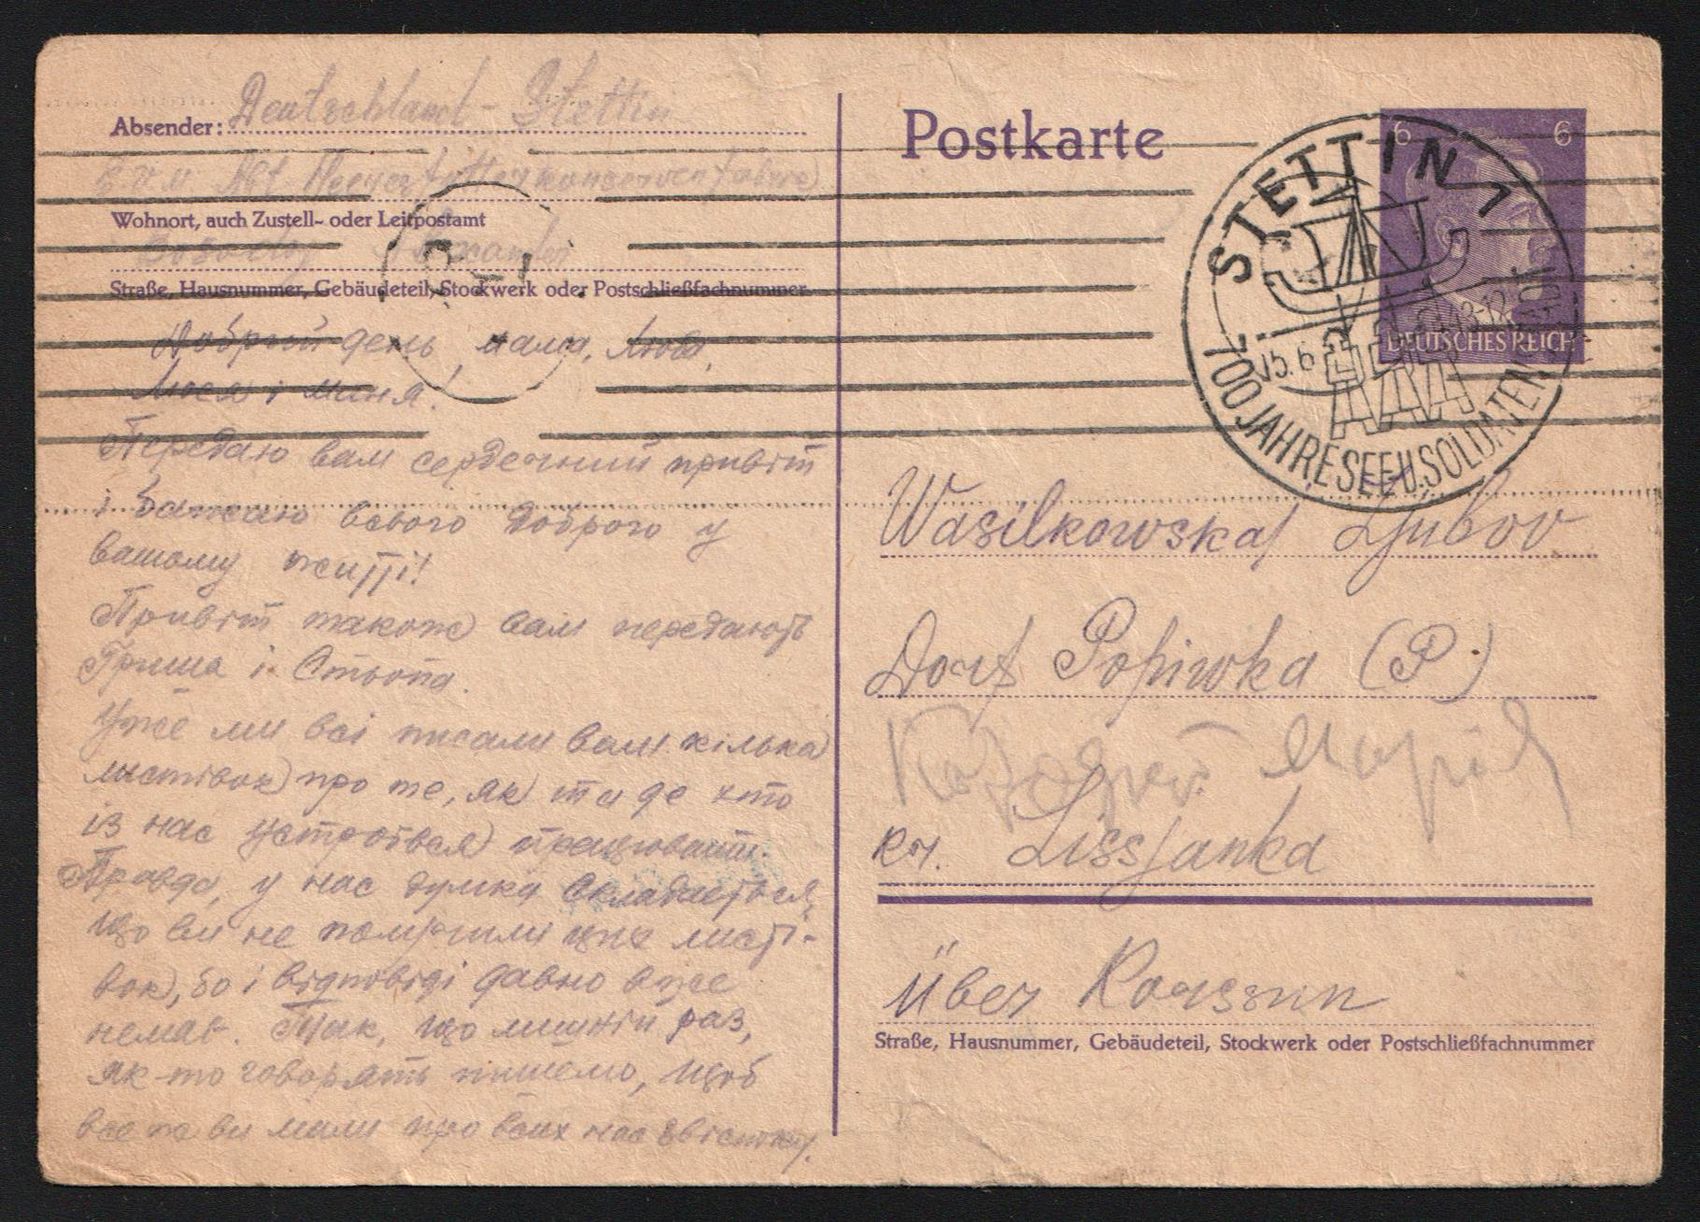 Absender: Deutschland - Stettin
Wohnort, auch Zustell- oder Leitpostamt
Straße, Hausnummer, Gebäudeteil, Stockwerk oder Postschließfachnummer
Добрий день, мама, Люба,
Люся і Миня!
Передаю вам сердечний привіт
і бажаю всього доброго у
вашому житті!
Привіт також вам передають
Гриша і Стьопа.
Уже ми всі писали вам кілька
листівок про те, як та де хто
із нас устроївся працювати.
Правда, у нас думка складається,
що ви не получили цих листі-
вок, бо і відповіді давно вже
немає. Так, що лишній раз,
як-то говорять пишемо, щоб
все ж ви мали про всіх нас звістку.
Postkarte
6 6
DEUTSCHES REICH
STETTIN 1
15.6
700 JAHRE SEE U. SOLDATENSTADT
Wasilkowska Ljubov
Dorf Popiwka (P)
Kr. Lissjanka
über Korssun
Straße, Hausnummer, Gebäudeteil, Stockwerk oder Postschließfachnummer